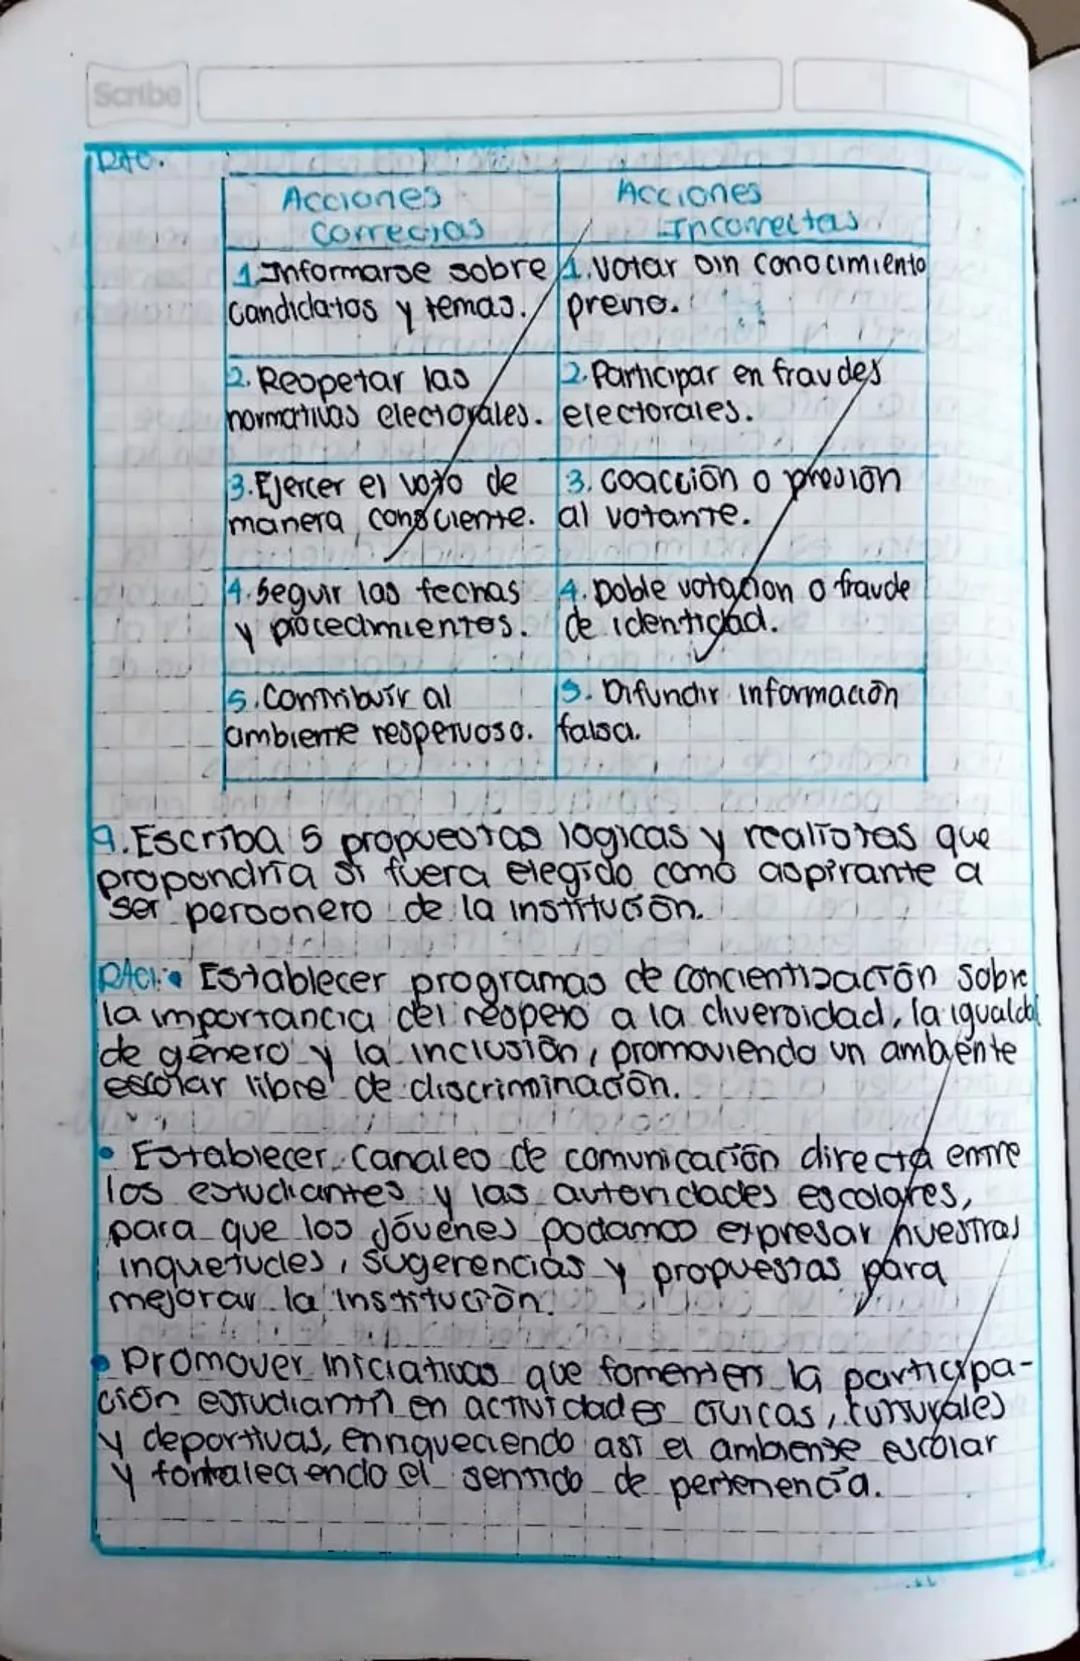 Scribe
RAC.
Acciones Correctas
Acciones Incorrectas
1. Informarse sobre
candidatos y temas.
1. Votar sin conocimiento
previo.
2. Respetar las
normativas electorales.
2. Participar en fraudes
electorales.
3. Ejercer el voto de
manera consciente.
3. Coacción o presión
al votante.
4. Seguir las fechas
y procedimientos.
4. Doble votacion o fraude
de identidad.
5. Contribuir al
ambiente respetuoso.
5. Difundir información
falsa.
9. Escriba 5 propuestas logicas y realistas que
propondría si fuera elegido como aspirante a
ser personero de la institución.
RAC: • Establecer programas de concientización sobre
la importancia del respeto a la diversidad, la igualdad
de género y la inclusión, promoviendo un ambiente
escolar libre de discriminación.
• Establecer canales de comunicación directa entre
los estudiantes y las autoridades escolares,
para que los jóvenes podamos expresar nuestras
inquietudes, sugerencias y propuestas para
mejorar la institución.
• Promover iniciativas que fomenten la participa-
ción estudiantil en actividades cívicas, culturales
y deportivas, enriqueciendo así el ambiente escolar
y fortaleciendo el sentido de pertenencia.